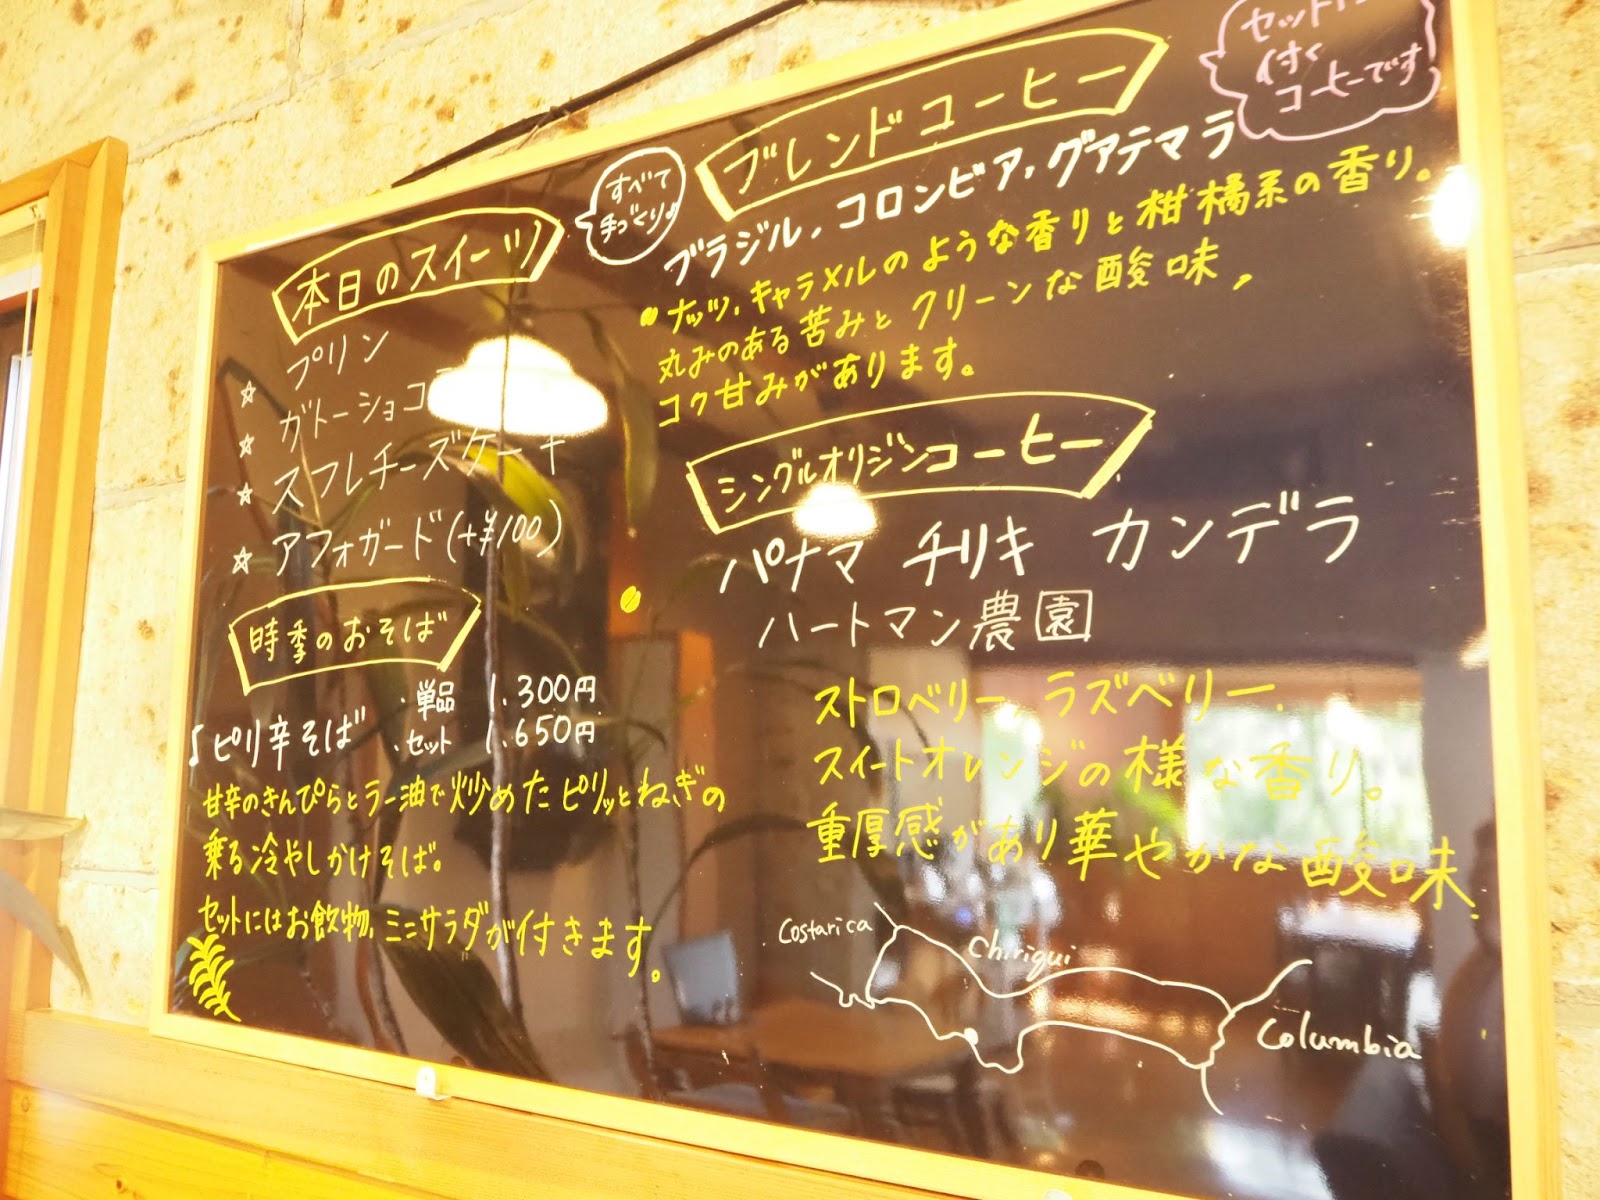 本日のスイーツ
すべて
手づくり♪
☆ プリン
☆ ガトーショコラ
☆ スフレチーズケーキ
☆ アフォガード(+¥100)
時季のおそば
♪ピリ辛そば
・単品 1.300円
・セット 1.650円
甘辛のきんぴらとラー油で炒めたピリッとねぎの
乗る冷やしかけそば。
セットにはお飲物,ミニサラダが付きます。
ブレンドコーヒー
セットに
付く
コーヒーです
ブラジル,コロンビア,グァテマラ
ナッツ,キャラメルのような香りと柑橘系の香り。
丸みのある苦みとクリーンな酸味,
コク甘みがあります。
シングルオリジンコーヒー
パナマ チリキ カンデラ
ハートマン農園
ストロベリー,ラズベリー,
スイートオレンジの様な香り。
重厚感があり華やかな酸味.
Costarica
Chiriqui
Columbia